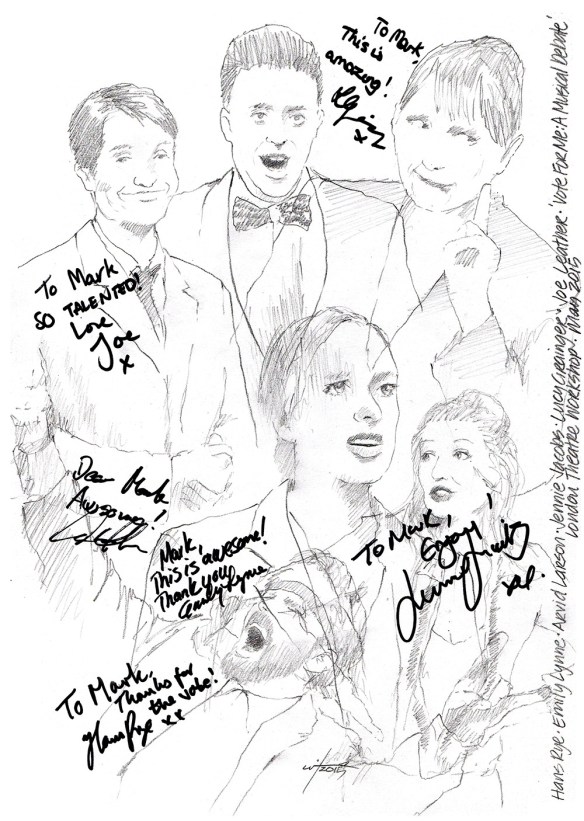 To Mark,
This is
amazing!
x
To Mark
SO TALENTED!
Love
Joe
x
Dear Mark
Awesome!
Mark,
This is awesome!
Thank you
Emily Lynne
To Mark,
Enjoy!
To Mark,
Thanks for
the vote!
Hans Rye xx
2015
Hans Rye · Emily Lynne · Arvid Larson · Jennie Jacobs · Lucy Grainger · Joe Leather · 'Vote For Me: A Musical Debate'
London Theatre Workshop. 2015